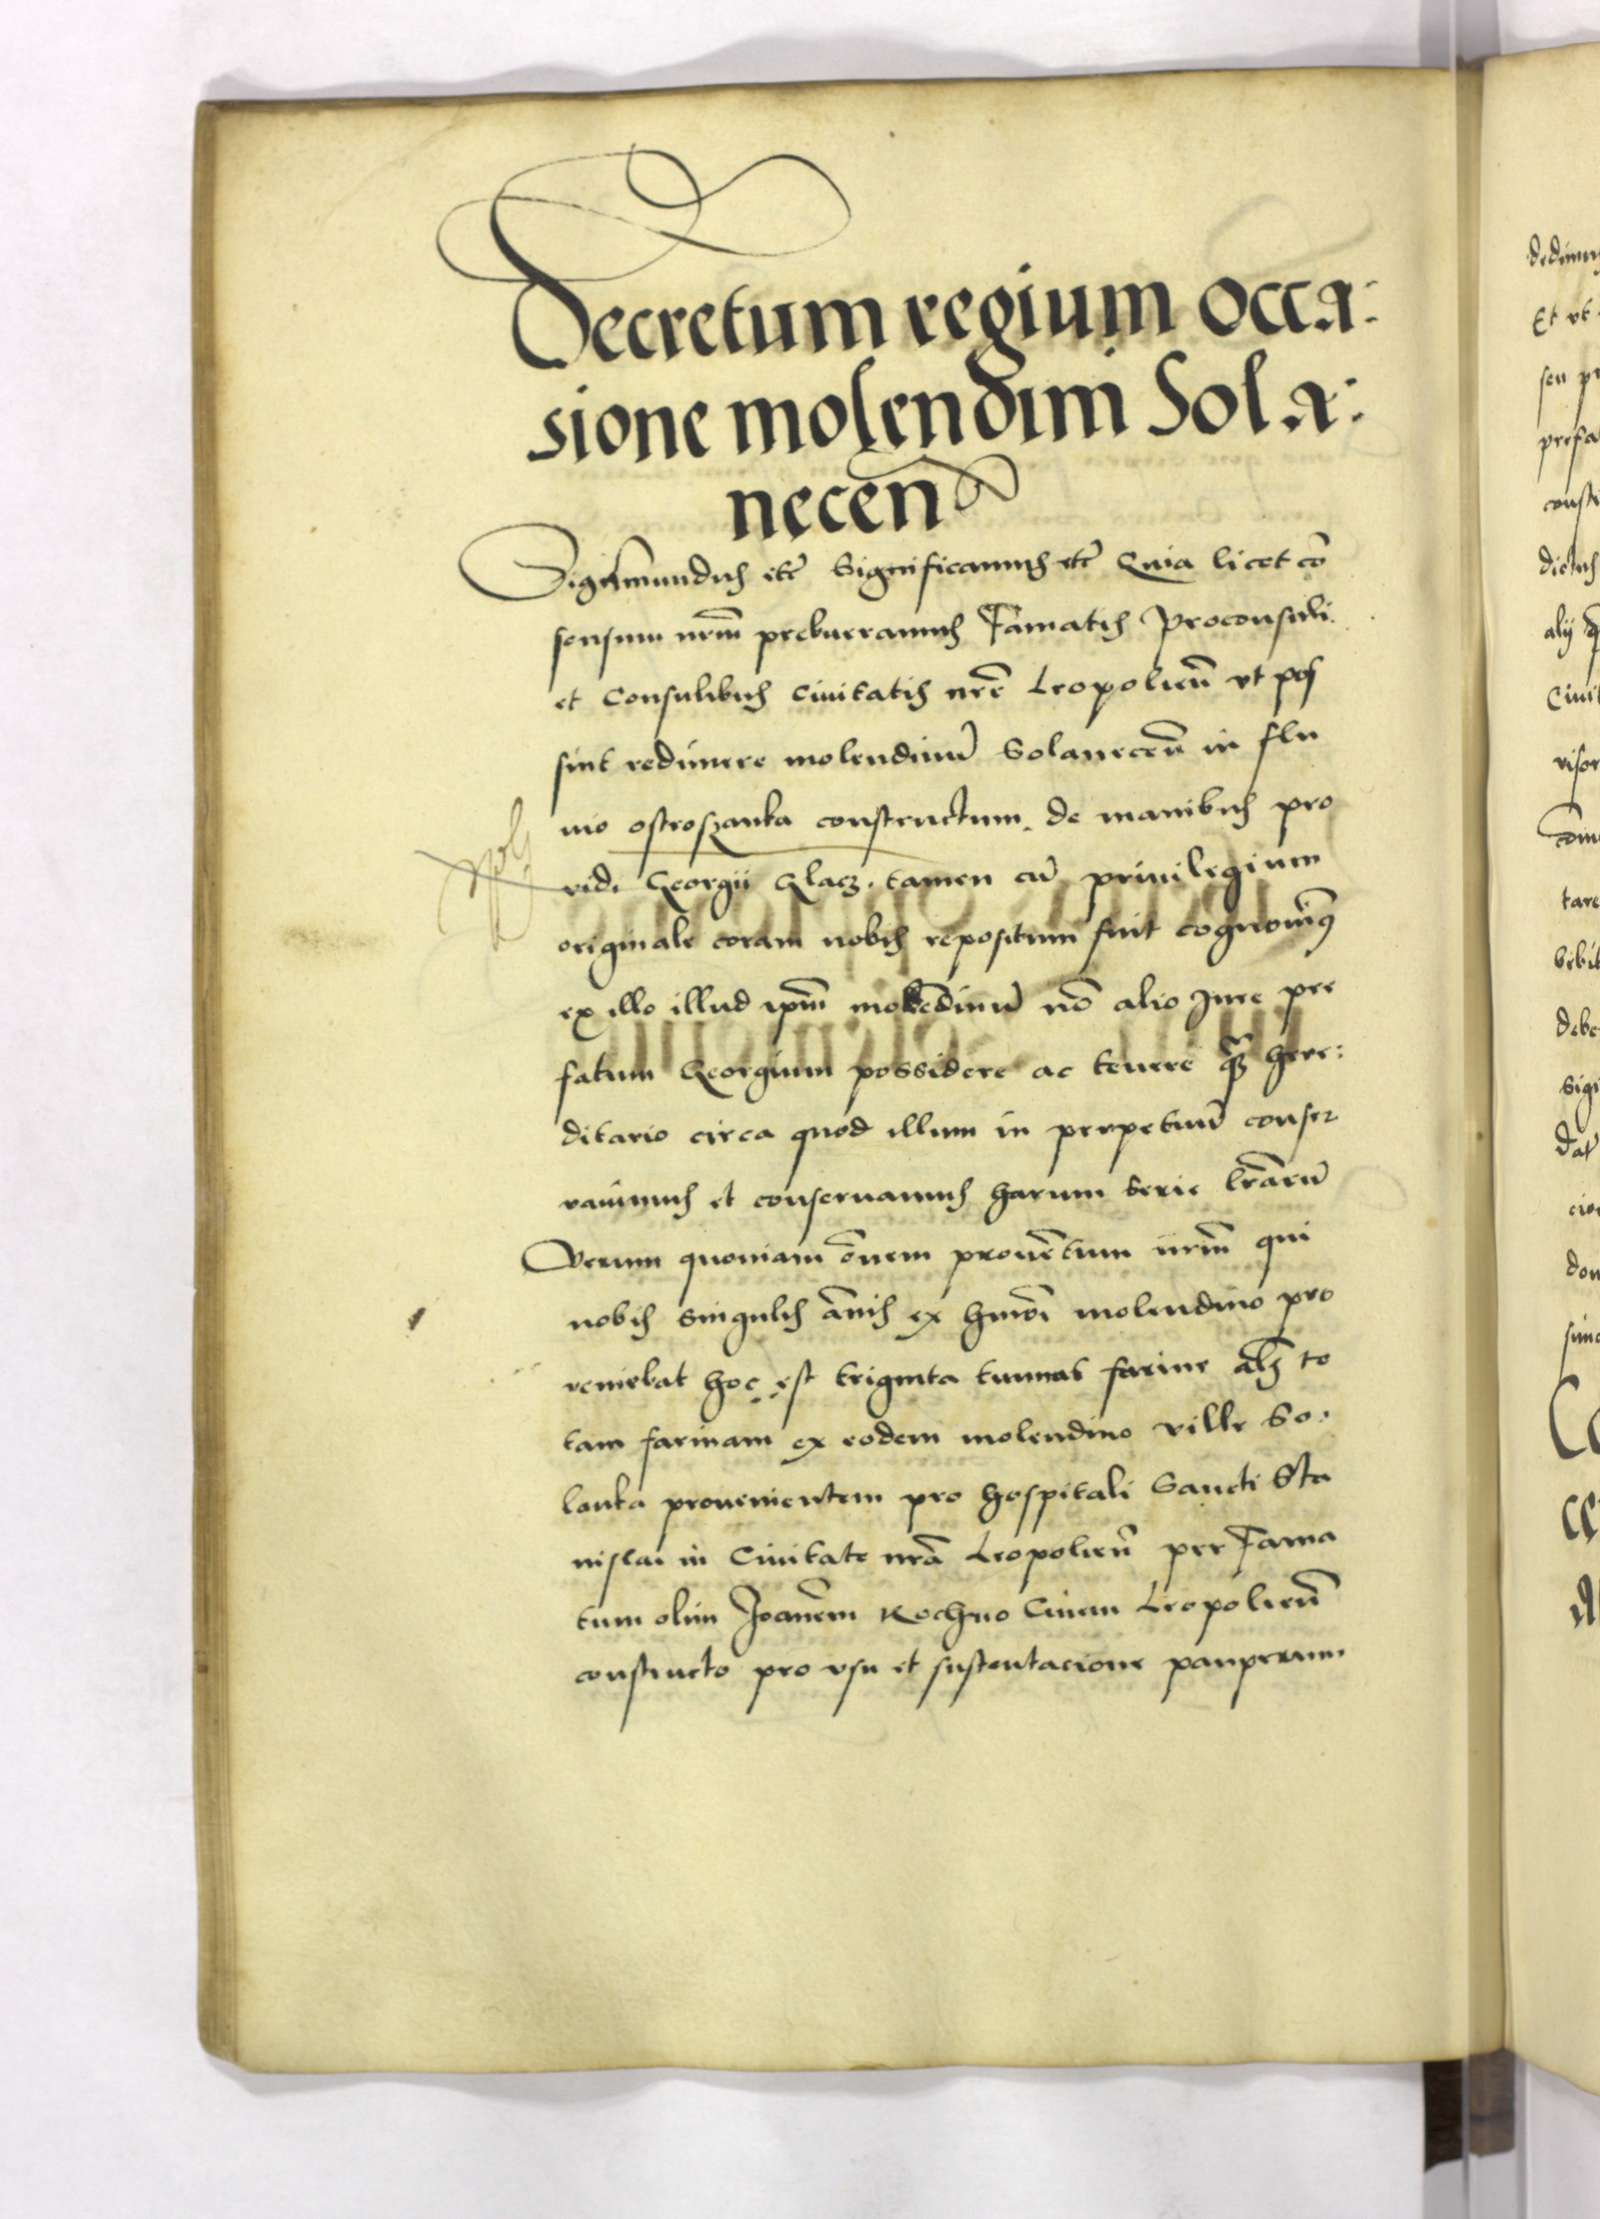 Decretum regium occa:
sione molendini Sola:
necen
Sigismundus etc Significamus etc Quia licet cō
sensum nrm̄ prebueramus Famatis Proconsuli
et Consulibus Ciuitatis nrē Leopolien̄ vt pos
sint redimere molendinū Solanecen̄ in flu
uio ostroszanka constructum de manibus pro
vidi Georgii Glacz. tamen cū priuilegium
originale coram nobis repositum fuit cognouimꝰ
ex illo illud ipm̄ molēdinū nō alio Jure pre
fatum Georgium possidere ac tenere qͣꝫ here:
ditario circa quod illum in perpetuū conser
vauimus et conseruamus harum serie lrārū
Verum quoniam ōnem prouētum nrm̄ qui
nobis singulis ānis ex hmōi molendino pro
veniebat hoc est triginta tunnas farine als to
tam farinam ex eodem molendino ville So:
lanka prouenientem pro hospitali Sancti Sta
nislai in Ciuitate nrā Leopolien̄ per Fama
tum olim Joanēm Rochno Ciuem Leopolien̄
constructo pro vsu et sustentacione pauperum